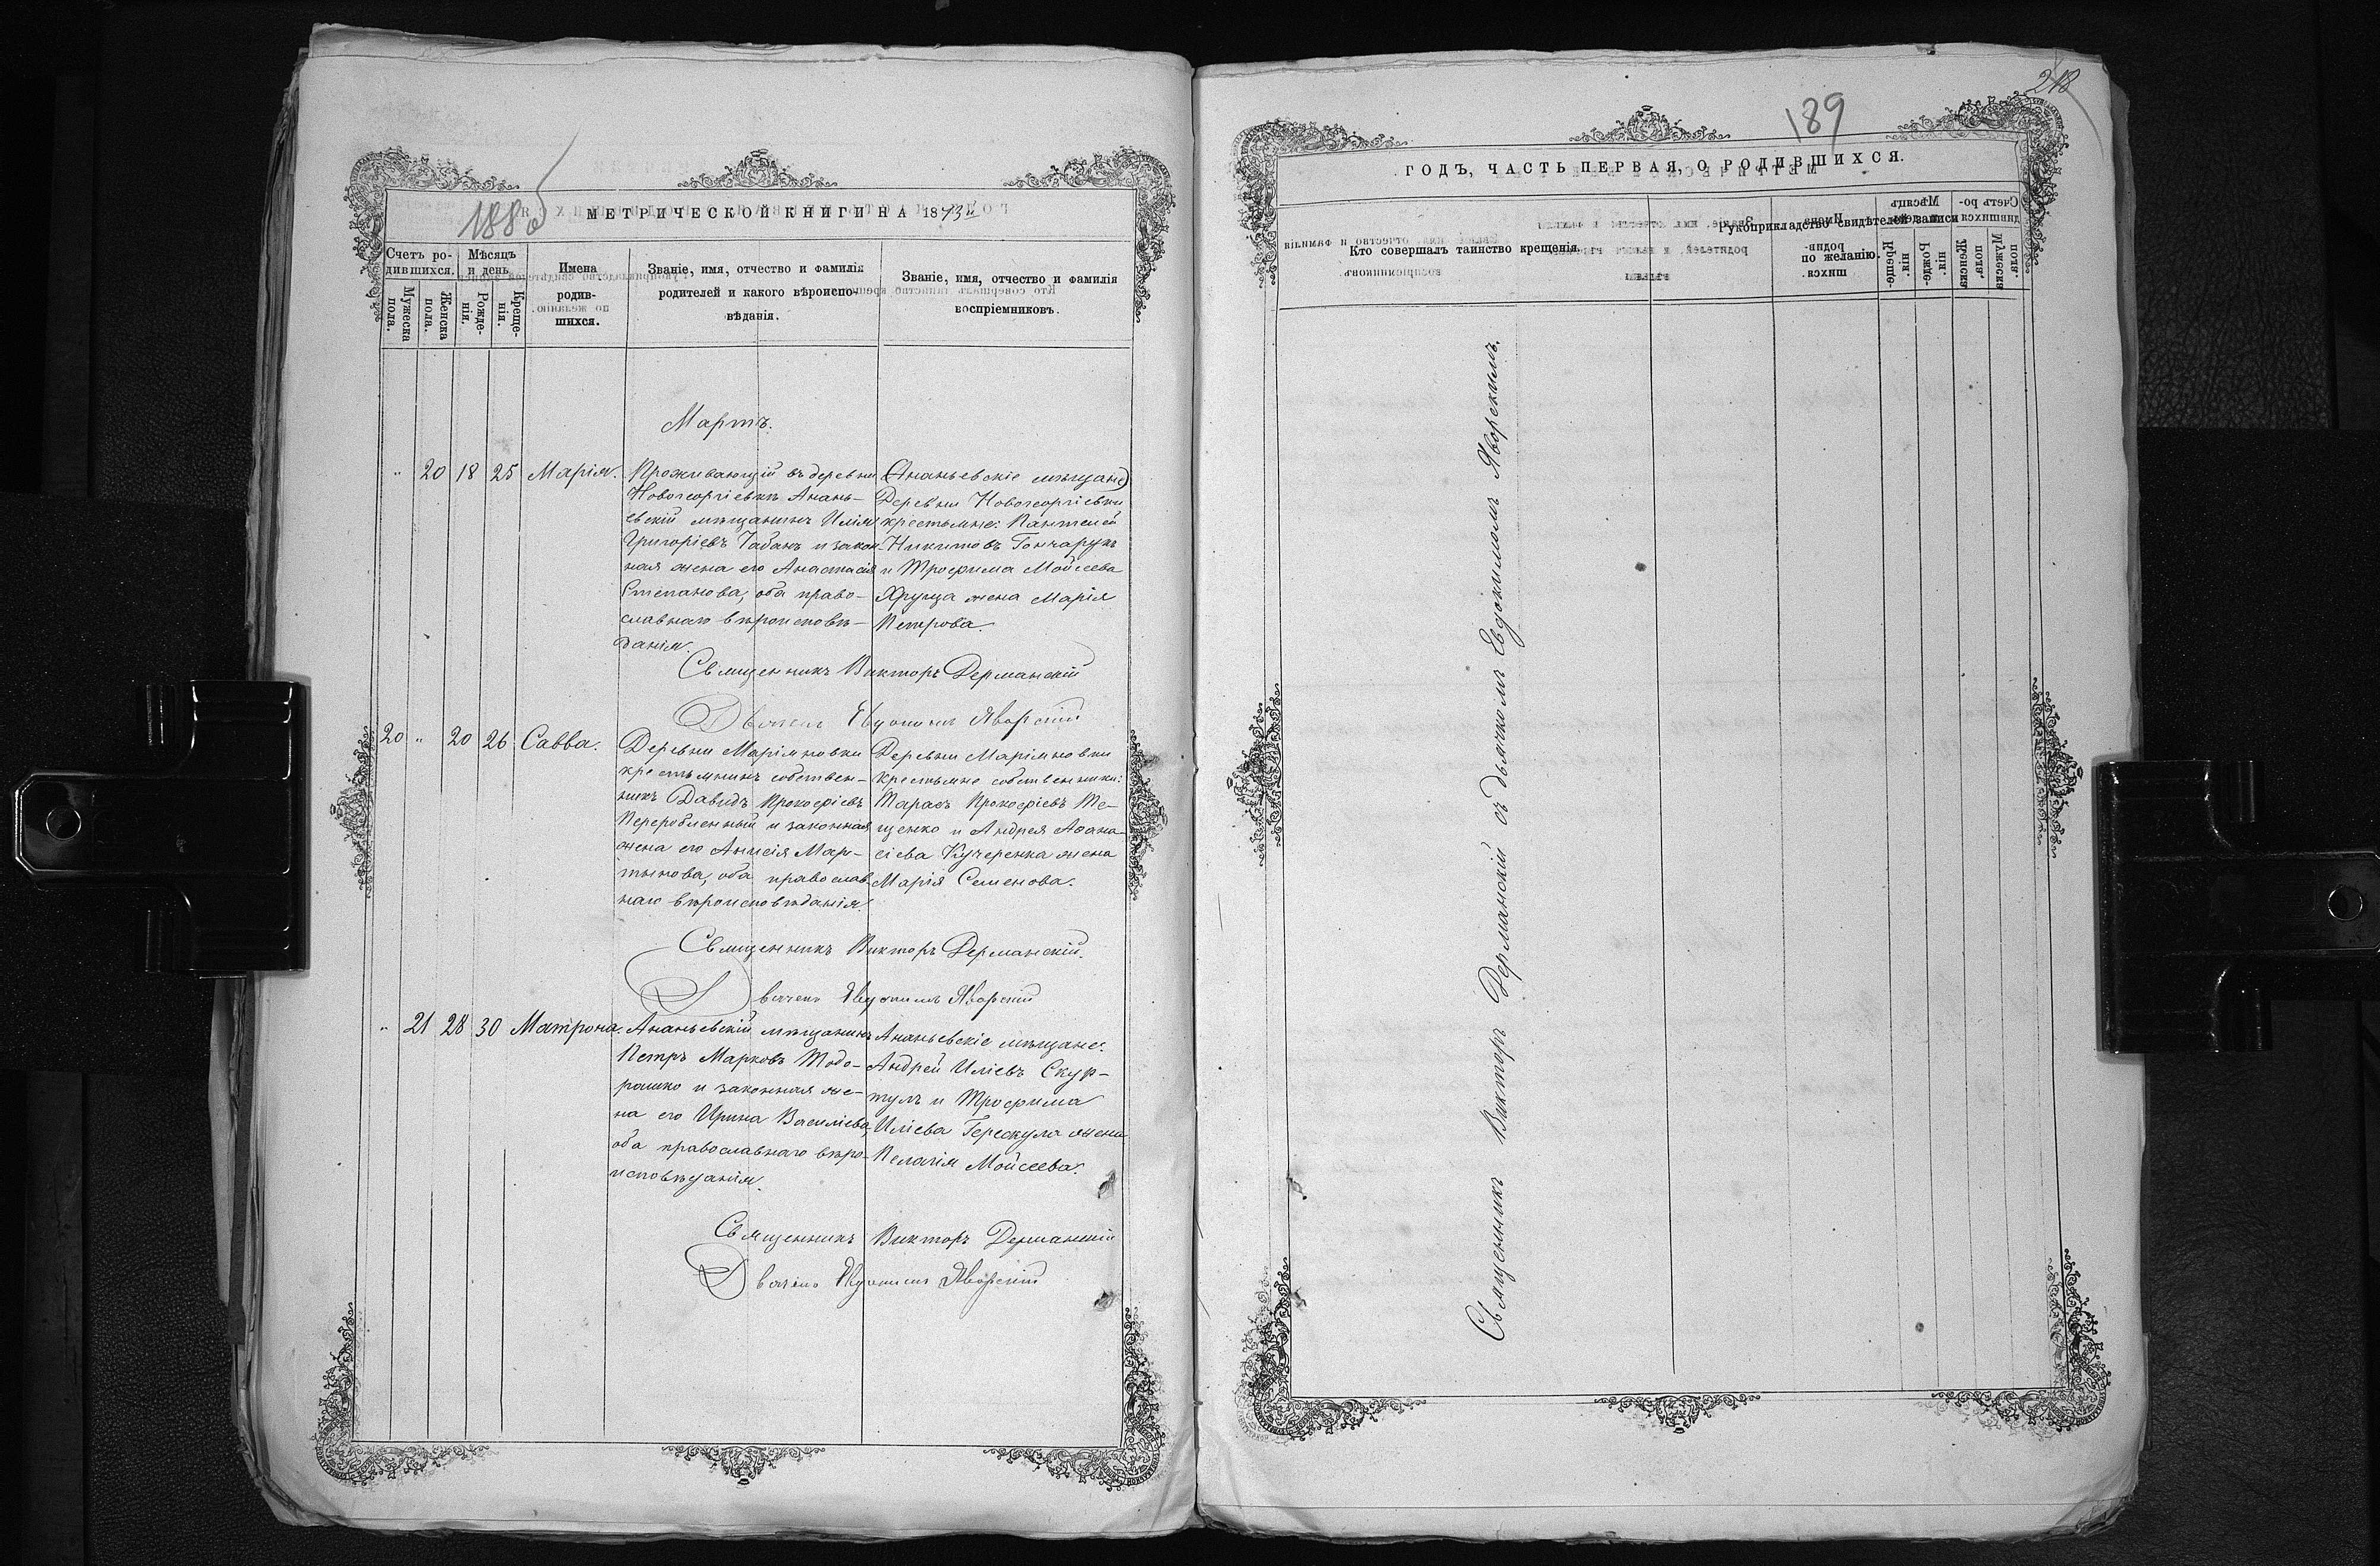 188
МЕТРИЧЕСКОЙ КНИГИ НА 1873й
Счетъ ро-
дившихся.
Мѣсяцъ
и день
Мужеска
пола.
Женска
пола.
Рожде-
нія.
Креще-
нія.
Имена
родив-
шихся.
Званіе, имя, отчество и фамилія
родителей и какого вѣроиспо-
вѣданія.
Званіе, имя, отчество и фамилія
воспріемниковъ.
Мартъ.
" 20 18 25 Марія.
Проживающій въ деревни
Новогеоргіевкѣ Анань-
евскій мѣщанинъ Илія
Григоріевъ Чабанъ и закон-
ная жена его Анастасія
Степанова, оба право-
славнаго вѣроисповѣ-
данія.
Ананьевскіе мѣщане
Деревни Новогеоргіевки
крестьяне: Пантелей
Никитовъ Гончарукъ
и Трофима Мойсеева
жена Марія
Петрова.
Священникъ Викторъ Дерманскій
Дьячекъ Евдокимъ Яворскій
20 " 20 26 Савва.
Деревни Маріяновки
крестьянинъ собствен-
никъ Давидъ Прокофіевъ
Переробленный и законная
жена его Анисія Мар-
тынова, оба православ-
наго вѣроисповѣданія.
Деревни Маріяновки
крестьяне собственники:
Тарасъ Прокофіевъ Те-
щенко и Андрея Афана-
сіева Кучеренка жена
Марія Семенова.
Священникъ Викторъ Дерманскій.
Дьячекъ Евдокимъ Яворскій
" 21 28 30 Матрона.
Ананьевскій мѣщанинъ
Петръ Марковъ Тодо-
рашко и законная же-
на его Ирина Василіева,
оба православнаго вѣро-
исповѣданія.
Ананьевскіе мѣщане:
Андрей Иліевъ Скур-
тулъ и Трофима
Иліева Герескула жена
Пелагія Мойсеева.
Священникъ Викторъ Дерманскій
Дьячекъ Евдокимъ Яворскій
218
189
ГОДЪ, ЧАСТЬ ПЕРВАЯ, О РОДИВШИХСЯ.
Кто совершалъ таинство крещенія.
Рукоприкладство свидѣтелей записи
по желанію.
Священникъ Викторъ Дерманскій съ дьячкомъ Евдокимомъ Яворскимъ.